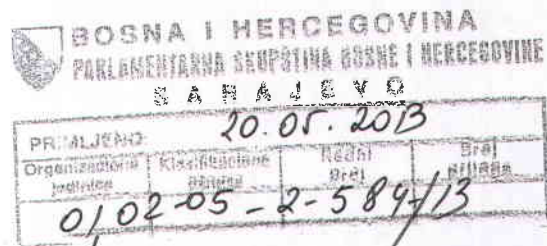 BOSNA I HERCEGOVINA
PARLAMENTARNA SKUPŠTINA BOSNE I HERCEGOVINE
SARAJEVO
PRIMLJENO: 20.05.2013
Organizaciona jedinica Klasifikaciona oznaka Redni broj Broj priloga
01,02-05-2-584/13